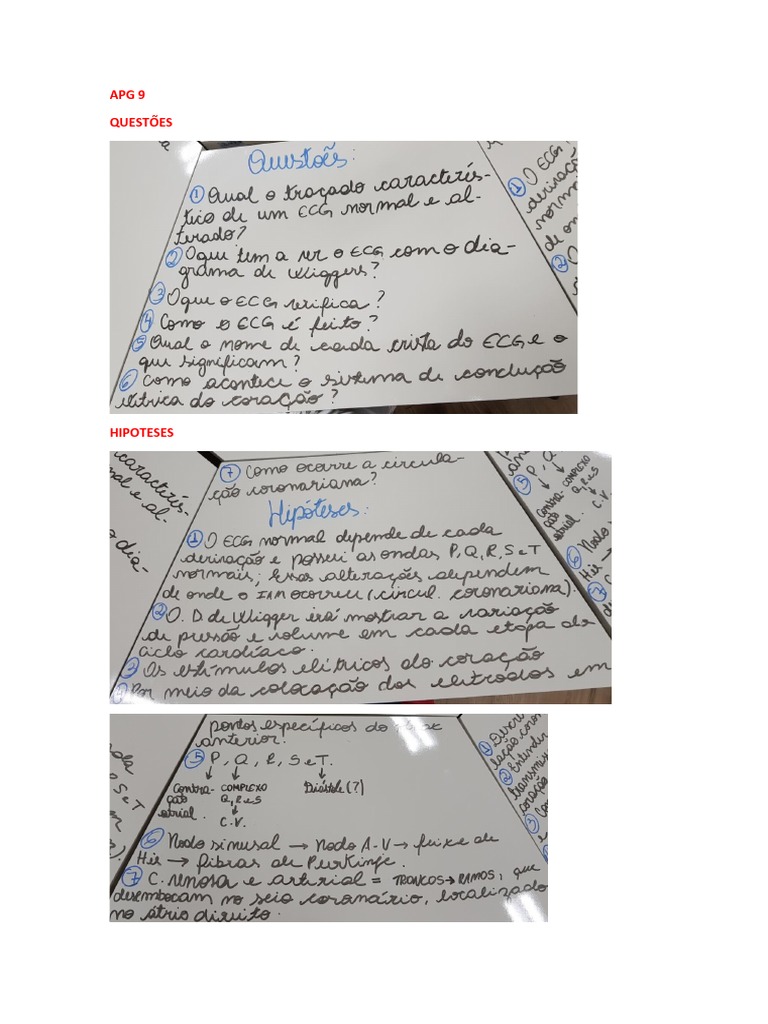 APG 9
QUESTÕES
Questões:
① Qual o traçado caracterís-
tico de um ECG normal e al-
terado?
② O que tem a ver o ECG com o dia-
grama de Wiggers?
③ O que o ECG verifica?
④ Como o ECG é feito?
⑤ Qual o nome de cada crista do ECG e o
que significam?
⑥ Como acontece o sistema de condução
elétrica do coração?
① O ECG
derivaçã
norma
de on
②
HIPOTESES
⑦ Como ocorre a circula-
ção coronariana?
Hipóteses:
① O ECG normal depende de cada
derivação e possui as ondas P, Q, R, S e T
normais; Essas alterações dependem
de onde o IAM ocorreu (circul. coronariana).
② O. D. de Wigger irá mostrar a variação
de pressão e volume em cada etapa do
ciclo cardíaco.
③ Os estímulos elétricos do coração
④ Por meio da colocação dos eletrodos em
caracterís-
mal e al-
o dia-
⑤ P, Q
Contra- COMPLEXO
ção Q, R e S
atrial. C.V.
⑥ Nodo
His →
⑦ C.
pontos específicos do
anterior.
⑤ P, Q, R, S e T.
Contra- COMPLEXO Diástole (?)
ção Q, R e S
atrial. C.V.
⑥ Nodo sinusal → Nodo A-V → feixe de
His → fibras de Purkinje.
⑦ C. venosa e arterial = TRONCOS → RAMOS, que
desembocam no seio coronário, localizado
no átrio direito.
S e T
① Descre
lação coro
② Entender
transmi
coração
③ Co
e